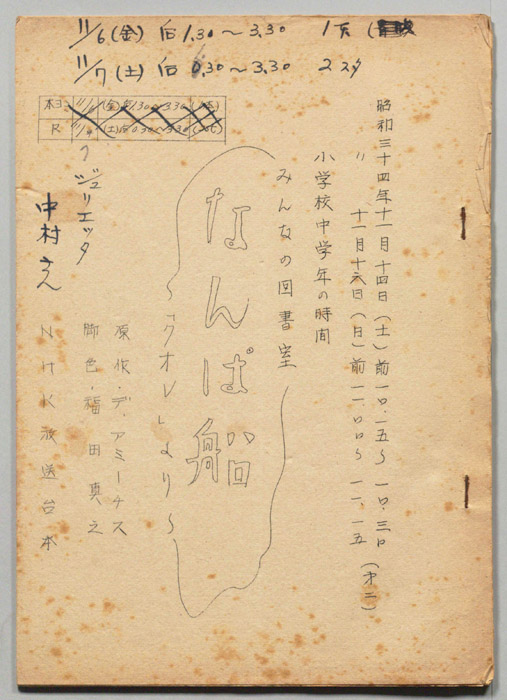 11/6(金) 后1.30～3.30 1スタ
11/7(土) 后0.30～3.30 2スタ
本ヨミ 11/6(金)后1.30～3.30
R 11/7(土)后0.30～3.30
昭和三十四年十一月十四日(土)前一〇.一五〜一〇.三〇
〃 十一月十六日(日)前一一.〇〇〜一一.一五(オ二)
小学校中学年の時間
みんなの図書室
なんぱ船
〜「クオレ」より〜
原作・デ・アミーチス
脚色・福田真之
NHK放送台本
ジュリエッタ
中村さん